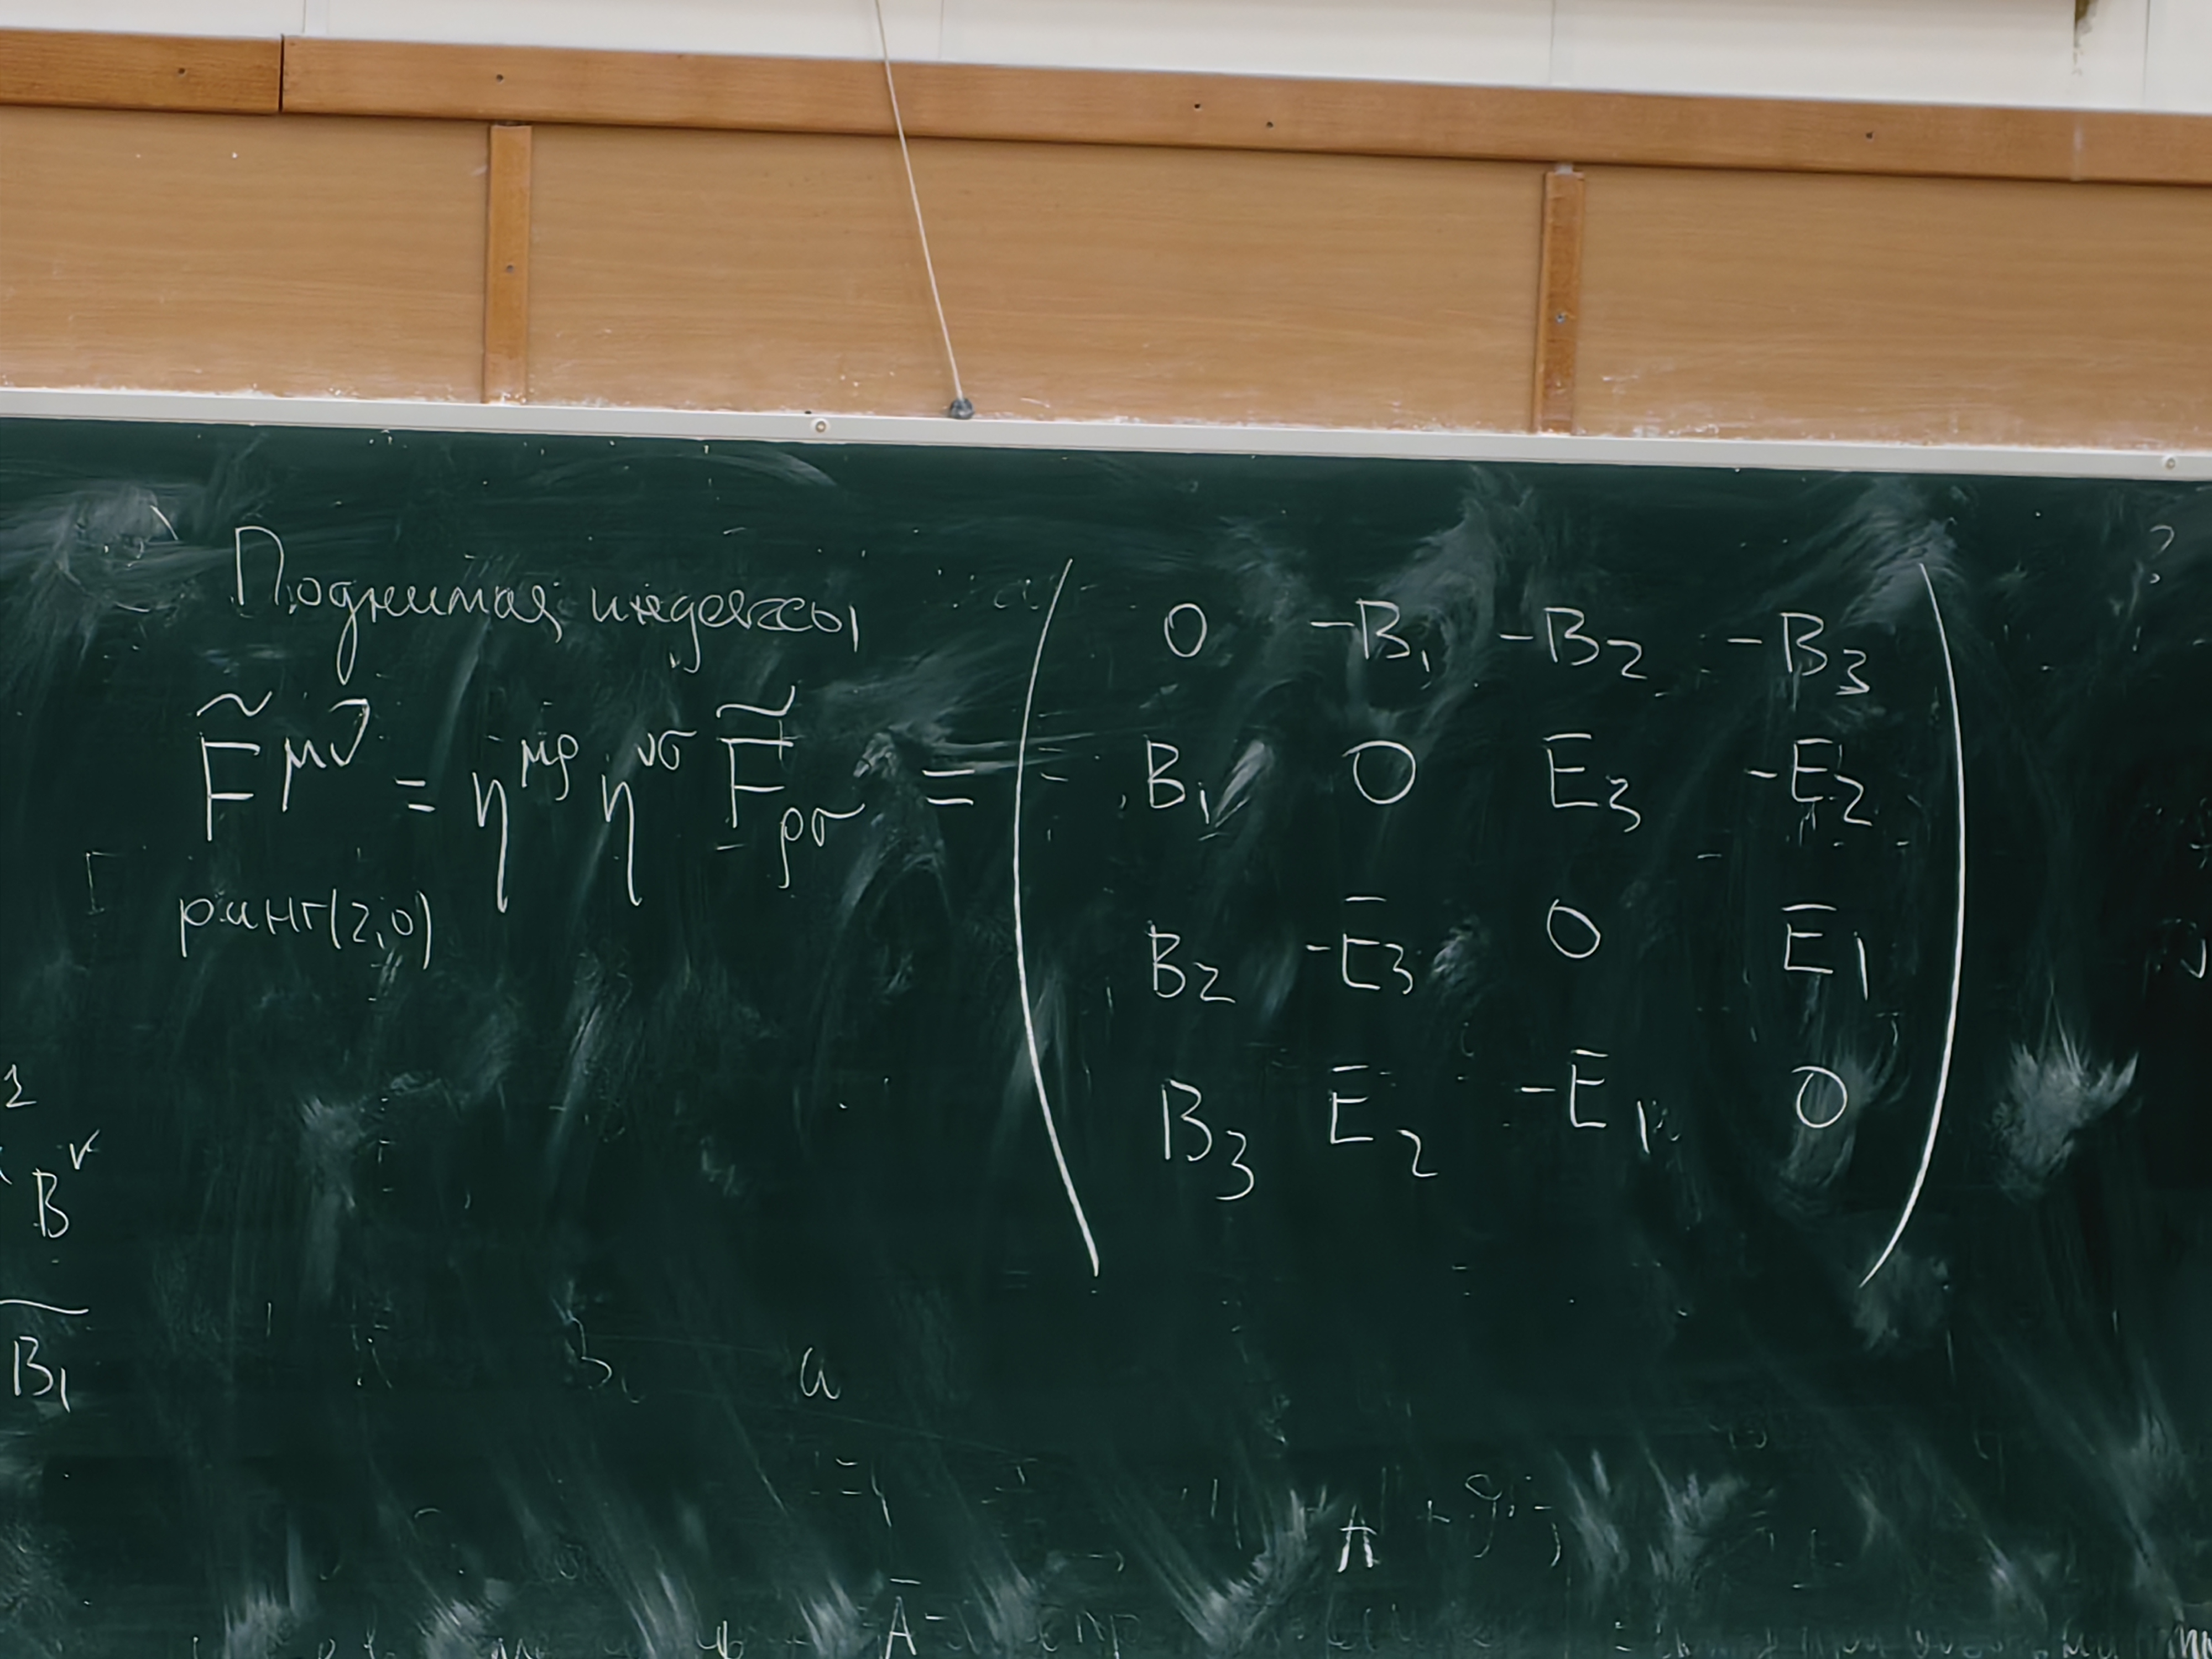 Поднимая индексы
F̃^{μν} = η^{μρ} η^{νσ} F̃_{ρσ} =
0 -B₁ -B₂ -B₃
B₁ 0 E₃ -E₂
B₂ -E₃ 0 E₁
B₃ E₂ -E₁ 0
ранг(2,0)
B
B₁